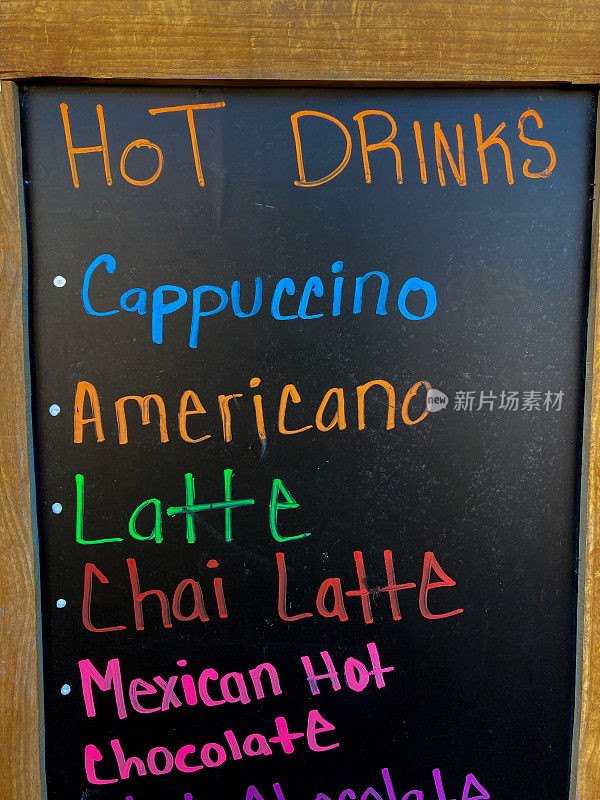 HOT DRINKS
Cappuccino
Americano
new 新片场素材
Latte
Chai Latte
Mexican Hot
Chocolate